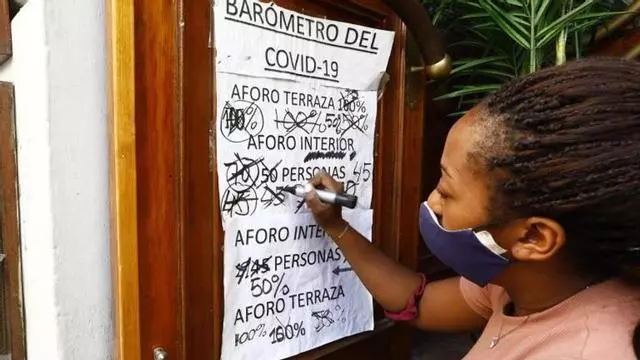 BARÓMETRO DEL
COVID-19
AFORO TERRAZA 100%
100% 50%
AFORO INTERIOR
50 PERSONAS 45
45
AFORO INTE
45 PERSONAS
50%
AFORO TERRAZA
100% 100%